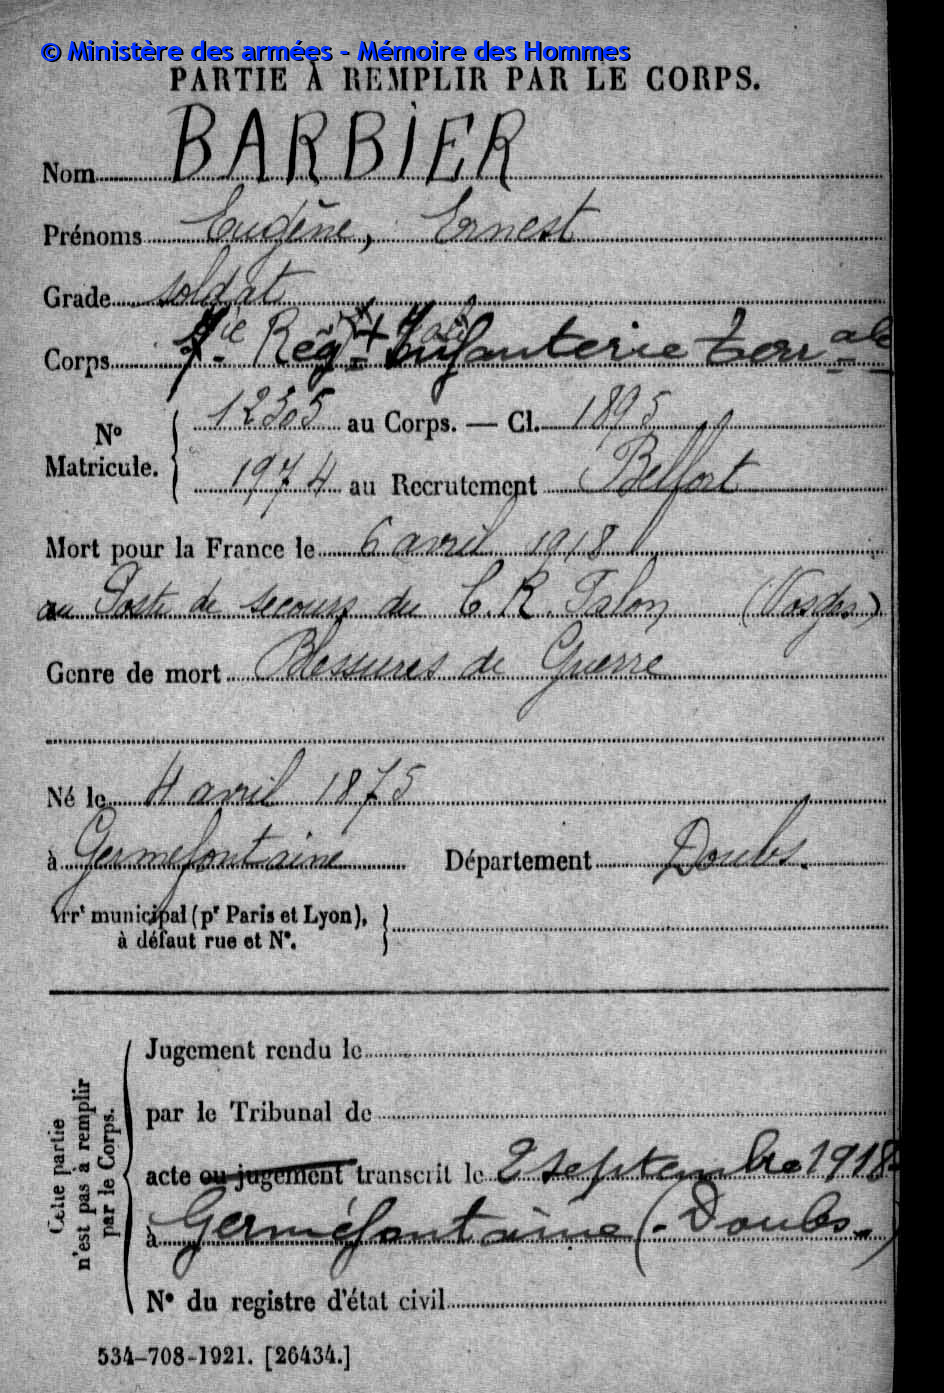 © Ministère des armées - Mémoire des Hommes
PARTIE À REMPLIR PAR LE CORPS.
Nom BARBIER
Prénoms Eugène, Ernest
Grade soldat
Corps Rég. Infanterie Terr ale
12305 au Corps. — Cl. 1895
N° Matricule.
1974 au Recrutement Belfort
Mort pour la France le 6 avril 1918
au Poste de secours du C. R. (Vosges)
Genre de mort Blessures de Guerre
Né le 4 avril 1875
à Germéfontaine Département Doubs.
Arrt municipal (pr Paris et Lyon),
à défaut rue et N°.
Cette partie
n'est pas à remplir
par le Corps.
Jugement rendu le
par le Tribunal de
acte ou jugement transcrit le 2 septembre 1918
à Germéfontaine (Doubs.)
N° du registre d'état civil
534-708-1921. [26434.]